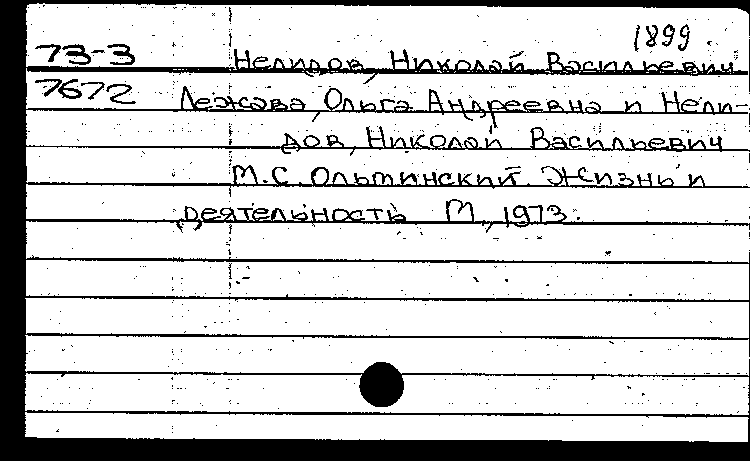 1899.
73-3 Нелидов, Николай Васильевич
7672 Лежава, Ольга Андреевна и Нели-
дов, Николай Васильевич
М.С. Ольминский. Жизнь и
деятельность М., 1973.